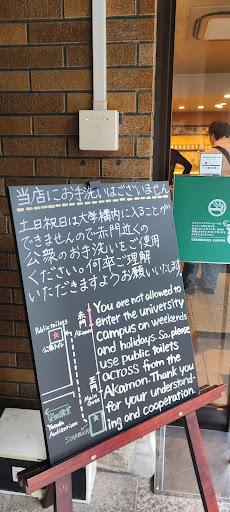 当店にお手洗いはございません
土日祝日は大学構内に入ることが
できませんので赤門近くの
公衆のお手洗いをご使用
ください。何卒ご理解
いただきますようお願いいたします
You are not allowed to
enter the university
campus on weekends
and holidays. So, please
use public toilets
across from the
Akamon. Thank you
for your understand-
ing and cooperation.
Public toilets
公衆トイレ
赤門
Akamon
正門
Main Gate
安田講堂
Yasuda
Auditorium
STARBUCKS
STARBUCKS COFFEE